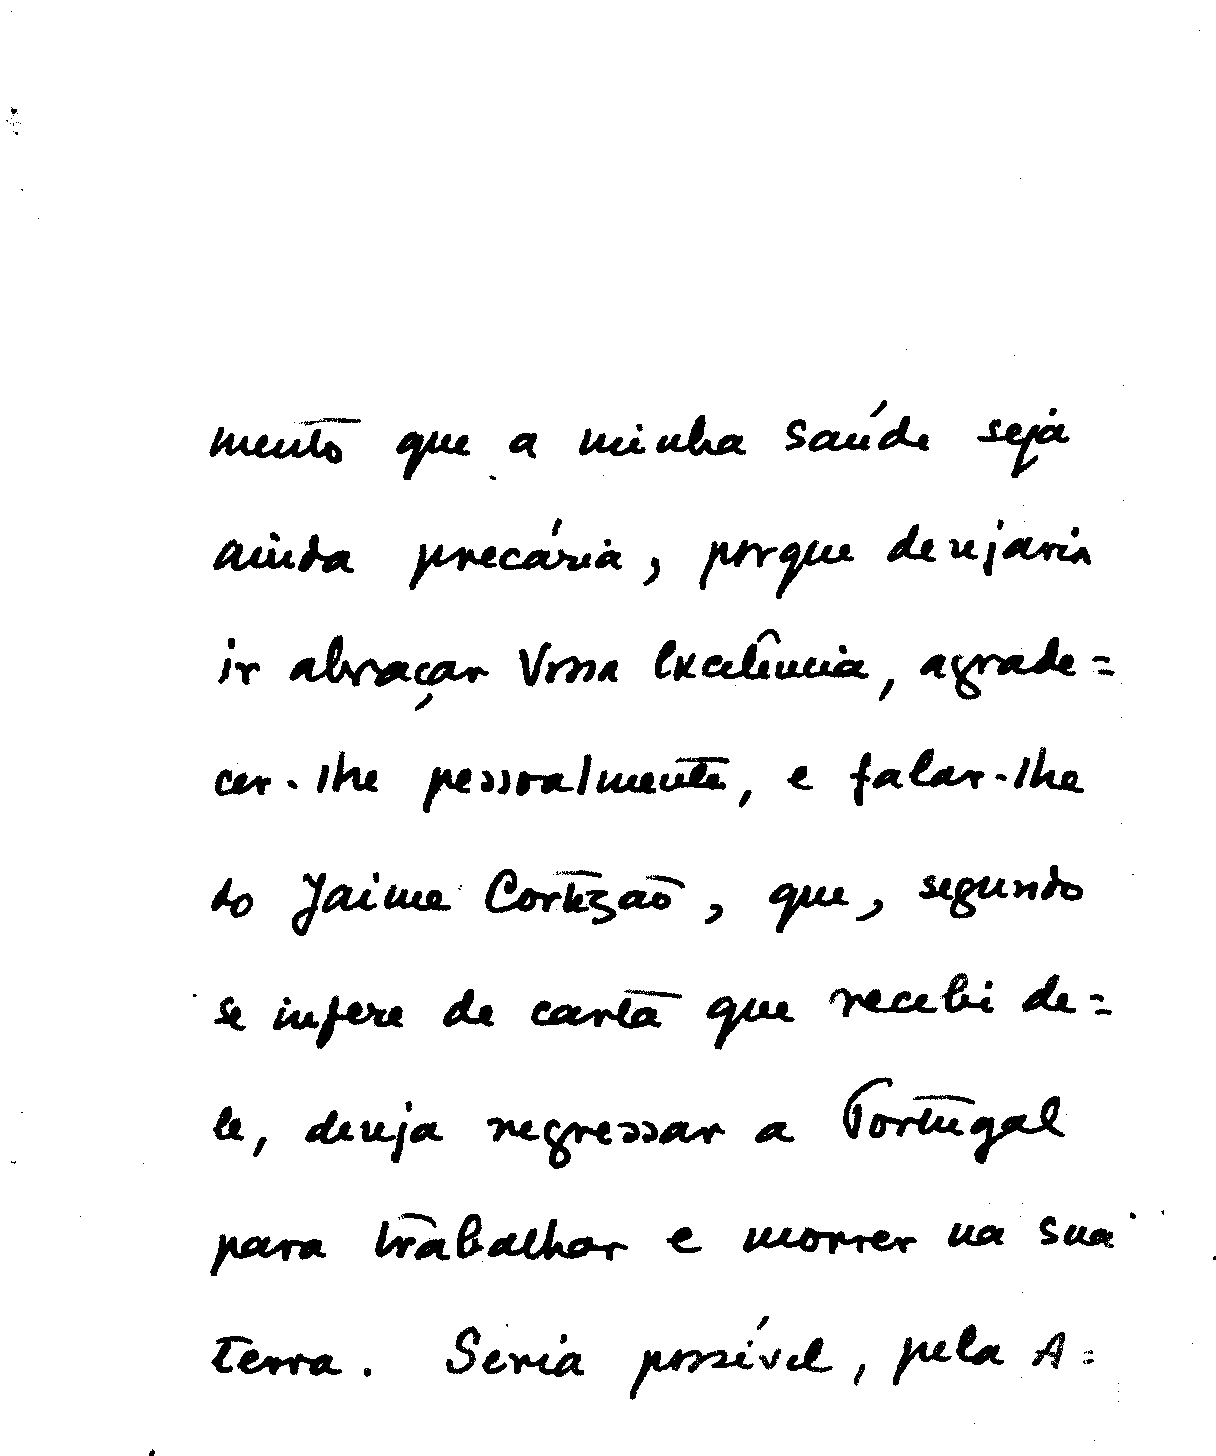 mento que a minha saúde seja
ainda precária, porque desejaria
ir abraçar Vossa Excelência, agrade=
cer-lhe pessoalmente, e falar-lhe
do Jaime Cortezão, que, segundo
se infere de carta que recebi de=
le, deseja regressar a Portugal
para trabalhar e morrer na sua
terra. Seria possível, pela A=